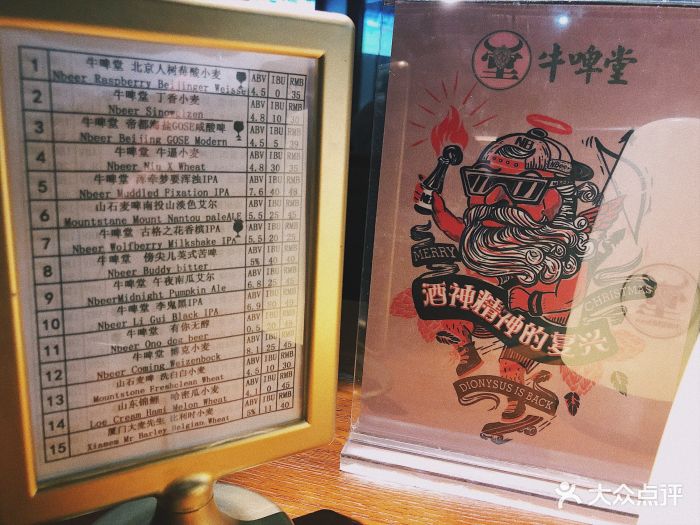 1 牛啤堂 北京人树莓酸小麦 ABV IBU RMB
Nbeer Raspberry Beijinger Weisse 4.5 0 35
2 牛啤堂 丁香小麦 ABV IBU RMB
4.8 10 30
3 牛啤堂 帝都海盐GOSE咸酸啤 ABV IBU RMB
Nbeer Beijing GOSE Modern 4.5 5 39
4 牛啤堂 牛逼小麦 ABV IBU RMB
Nbeer Niu X Wheat 4.8 30
5 牛啤堂 浑牵梦要浑浊IPA ABV IBU RMB
Nbeer Muddled Fixation IPA 7.6 40 48
6 山石麦啤南投山淡色艾尔 ABV IBU RMB
Mountstane Mount Nantou paleALE 5.5 25 45
7 牛啤堂 古格之花香槟IPA ABV IBU RMB
Nbeer Wolfberry Milkshake IPA 5.5 20 25
8 牛啤堂 傍尖儿英式苦啤 ABV IBU RMB
Nbeer Buddy bitter 5% 40 40
9 牛啤堂 午夜南瓜艾尔 ABV IBU RMB
NbeerMidnight Pumpkin Ale 6.8
10 牛啤堂 李鬼黑IPA ABV IBU RMB
Nbeer Li Gui Black IPA 6.9
11 牛啤堂 有你无醉 ABV IBU RMB
Nbeer Ono dog beer 0.5 20
12 牛啤堂 博克小麦 ABV IBU RMB
Nbeer Coming Weizenbock 8.1 25 45
13 山石麦啤 洗白白小麦 ABV IBU RMB
Mountstone Freshclean Wheat 4.5 10 30
14 山东锦鲤 哈密瓜小麦 ABV IBU RMB
Loe Cream Hami Melon Wheat 4.1 0 45
15 厦门大麦先生 比利时小麦 ABV IBU RMB
Xiamem Mr Barley Belgian Wheat 5% 11 40
堂 牛啤堂
NB
MERRY
CHRISTMAS
酒神精神的复兴
DIONYSUS IS BACK
大众点评